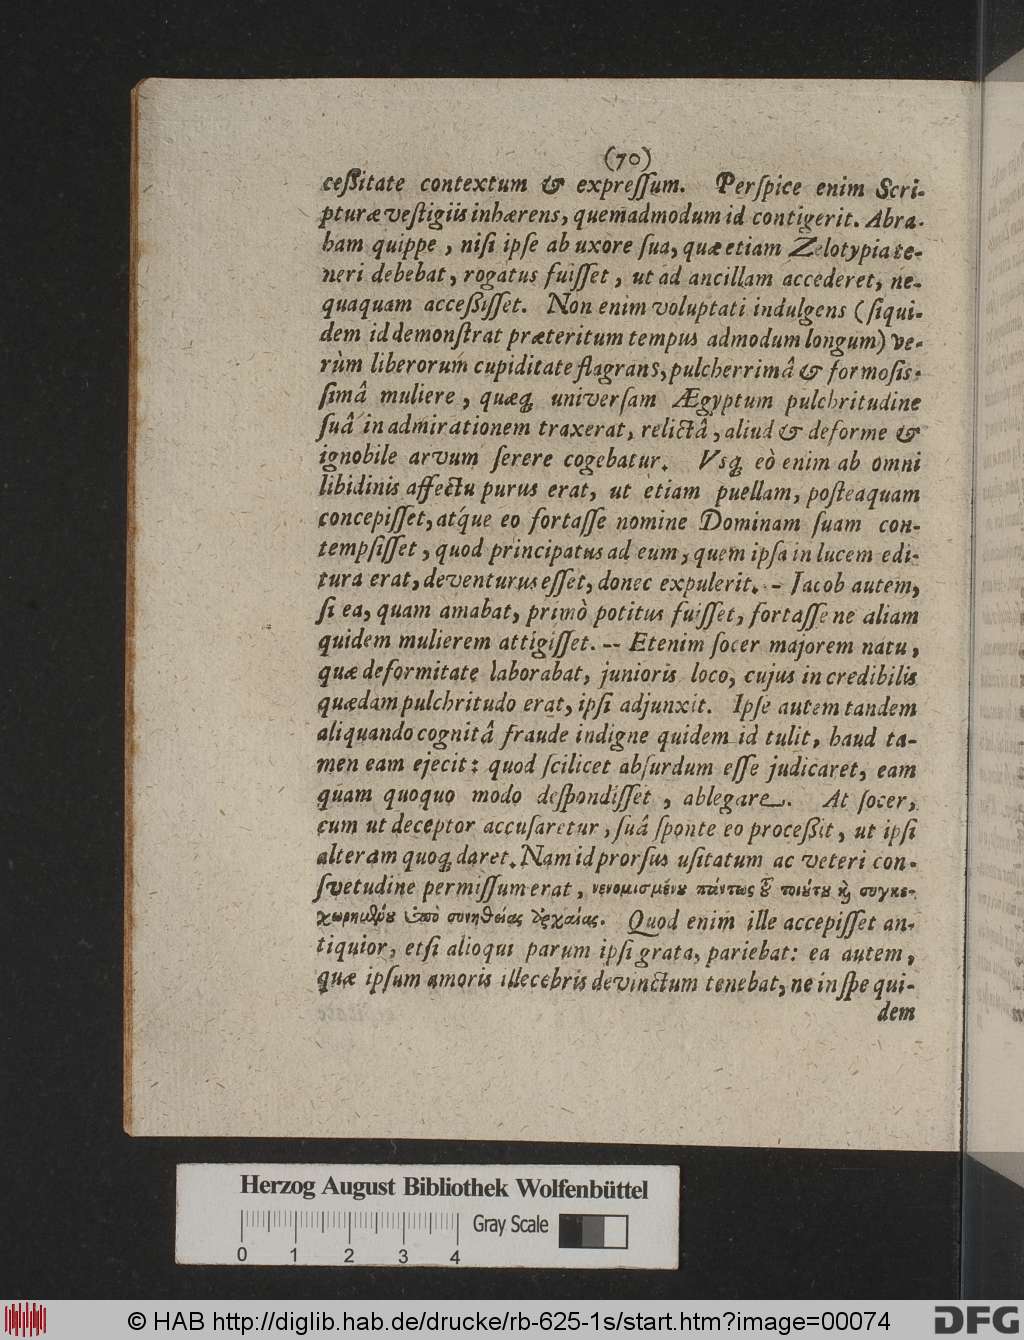 (70)
ceßitate contextum & expreſſum. Perſpice enim Scri-
pturæ veſtigiis inhærens, quemadmodum id contigerit. Abra-
ham quippe, niſi ipſe ab uxore ſua, quæ etiam Zelotypia te-
neri debebat, rogatus fuiſſet, ut ad ancillam accederet, ne-
quaquam acceßiſſet. Non enim voluptati indulgens (ſiqui-
dem id demonſtrat præteritum tempus admodum longum) ve-
rùm liberorum cupiditate flagrans, pulcherrimâ & formoſis-
ſimâ muliere, quæq; univerſam Ægyptum pulchritudine
ſuâ in admirationem traxerat, relictâ, aliud & deforme &
ignobile arvum ſerere cogebatur. Vsq; eò enim ab omni
libidinis affectu purus erat, ut etiam puellam, poſteaquam
concepiſſet, atque eo fortaſſe nomine Dominam ſuam con-
tempſiſſet, quod principatus ad eum, quem ipſa in lucem edi-
tura erat, deventurus eſſet, donec expulerit. - Jacob autem,
ſi ea, quam amabat, primò potitus fuiſſet, fortaſſe ne aliam
quidem mulierem attigiſſet. -- Etenim ſocer majorem natu,
quæ deformitate laborabat, junioris loco, cujus incredibilis
quædam pulchritudo erat, ipſi adjunxit. Ipſe autem tandem
aliquando cognitâ fraude indigne quidem id tulit, haud ta-
men eam ejecit: quod ſcilicet abſurdum eſſe judicaret, eam
quam quoquo modo deſpondiſſet, ablegare. At ſocer,
cum ut deceptor accuſaretur, ſuâ ſponte eo proceßit, ut ipſi
alteram quoq; daret. Nam id prorſus uſitatum ac veteri con-
ſvetudine permiſſum erat, νενομισμένου πάντως τοῦ τοιούτου καὶ συγκε-
χωρημένου ὑπὸ συνηθείας ἀρχαίας. Quod enim ille accepiſſet an-
tiquior, etſi alioqui parum ipſi grata, pariebat: ea autem,
quæ ipſum amoris illecebris devinctum tenebat, ne in ſpe qui-
dem
Herzog August Bibliothek Wolfenbüttel
Gray Scale
0 1 2 3 4
© HAB http://diglib.hab.de/drucke/rb-625-1s/start.htm?image=00074
DFG